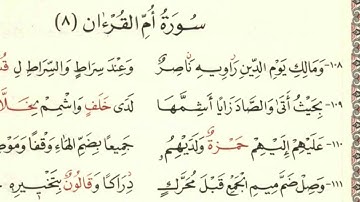 سُورَةُ أُمِّ الْقُرْءَانِ (٨)
١٠٨- وَمَالِكِ يَوْمِ الدِّينِ رَاوِيهِ نَاصِرٌ وَعِنْدَ سِرَاطٍ وَالسِّرَاطَ لِ
١٠٩- بِحَيْثُ أَتَى وَالصَّادَ زَايًا أَشِمَّهَا لَدَى خَلَفٍ وَاشْمِمْ
١١٠- عَلَيْهِمْ إِلَيْهِمْ حَمْزَةٌ وَلَدَيْهِمُ جَمِيعًا بِضَمِّ الْهَاءِ وَقْفًا
١١١- وَصِلْ ضَمَّ مِيمِ الْجَمْعِ قَبْلَ مُحَرَّكٍ دِرَاكًا وَقَالُونٌ بِتَخْيِيرِهِ